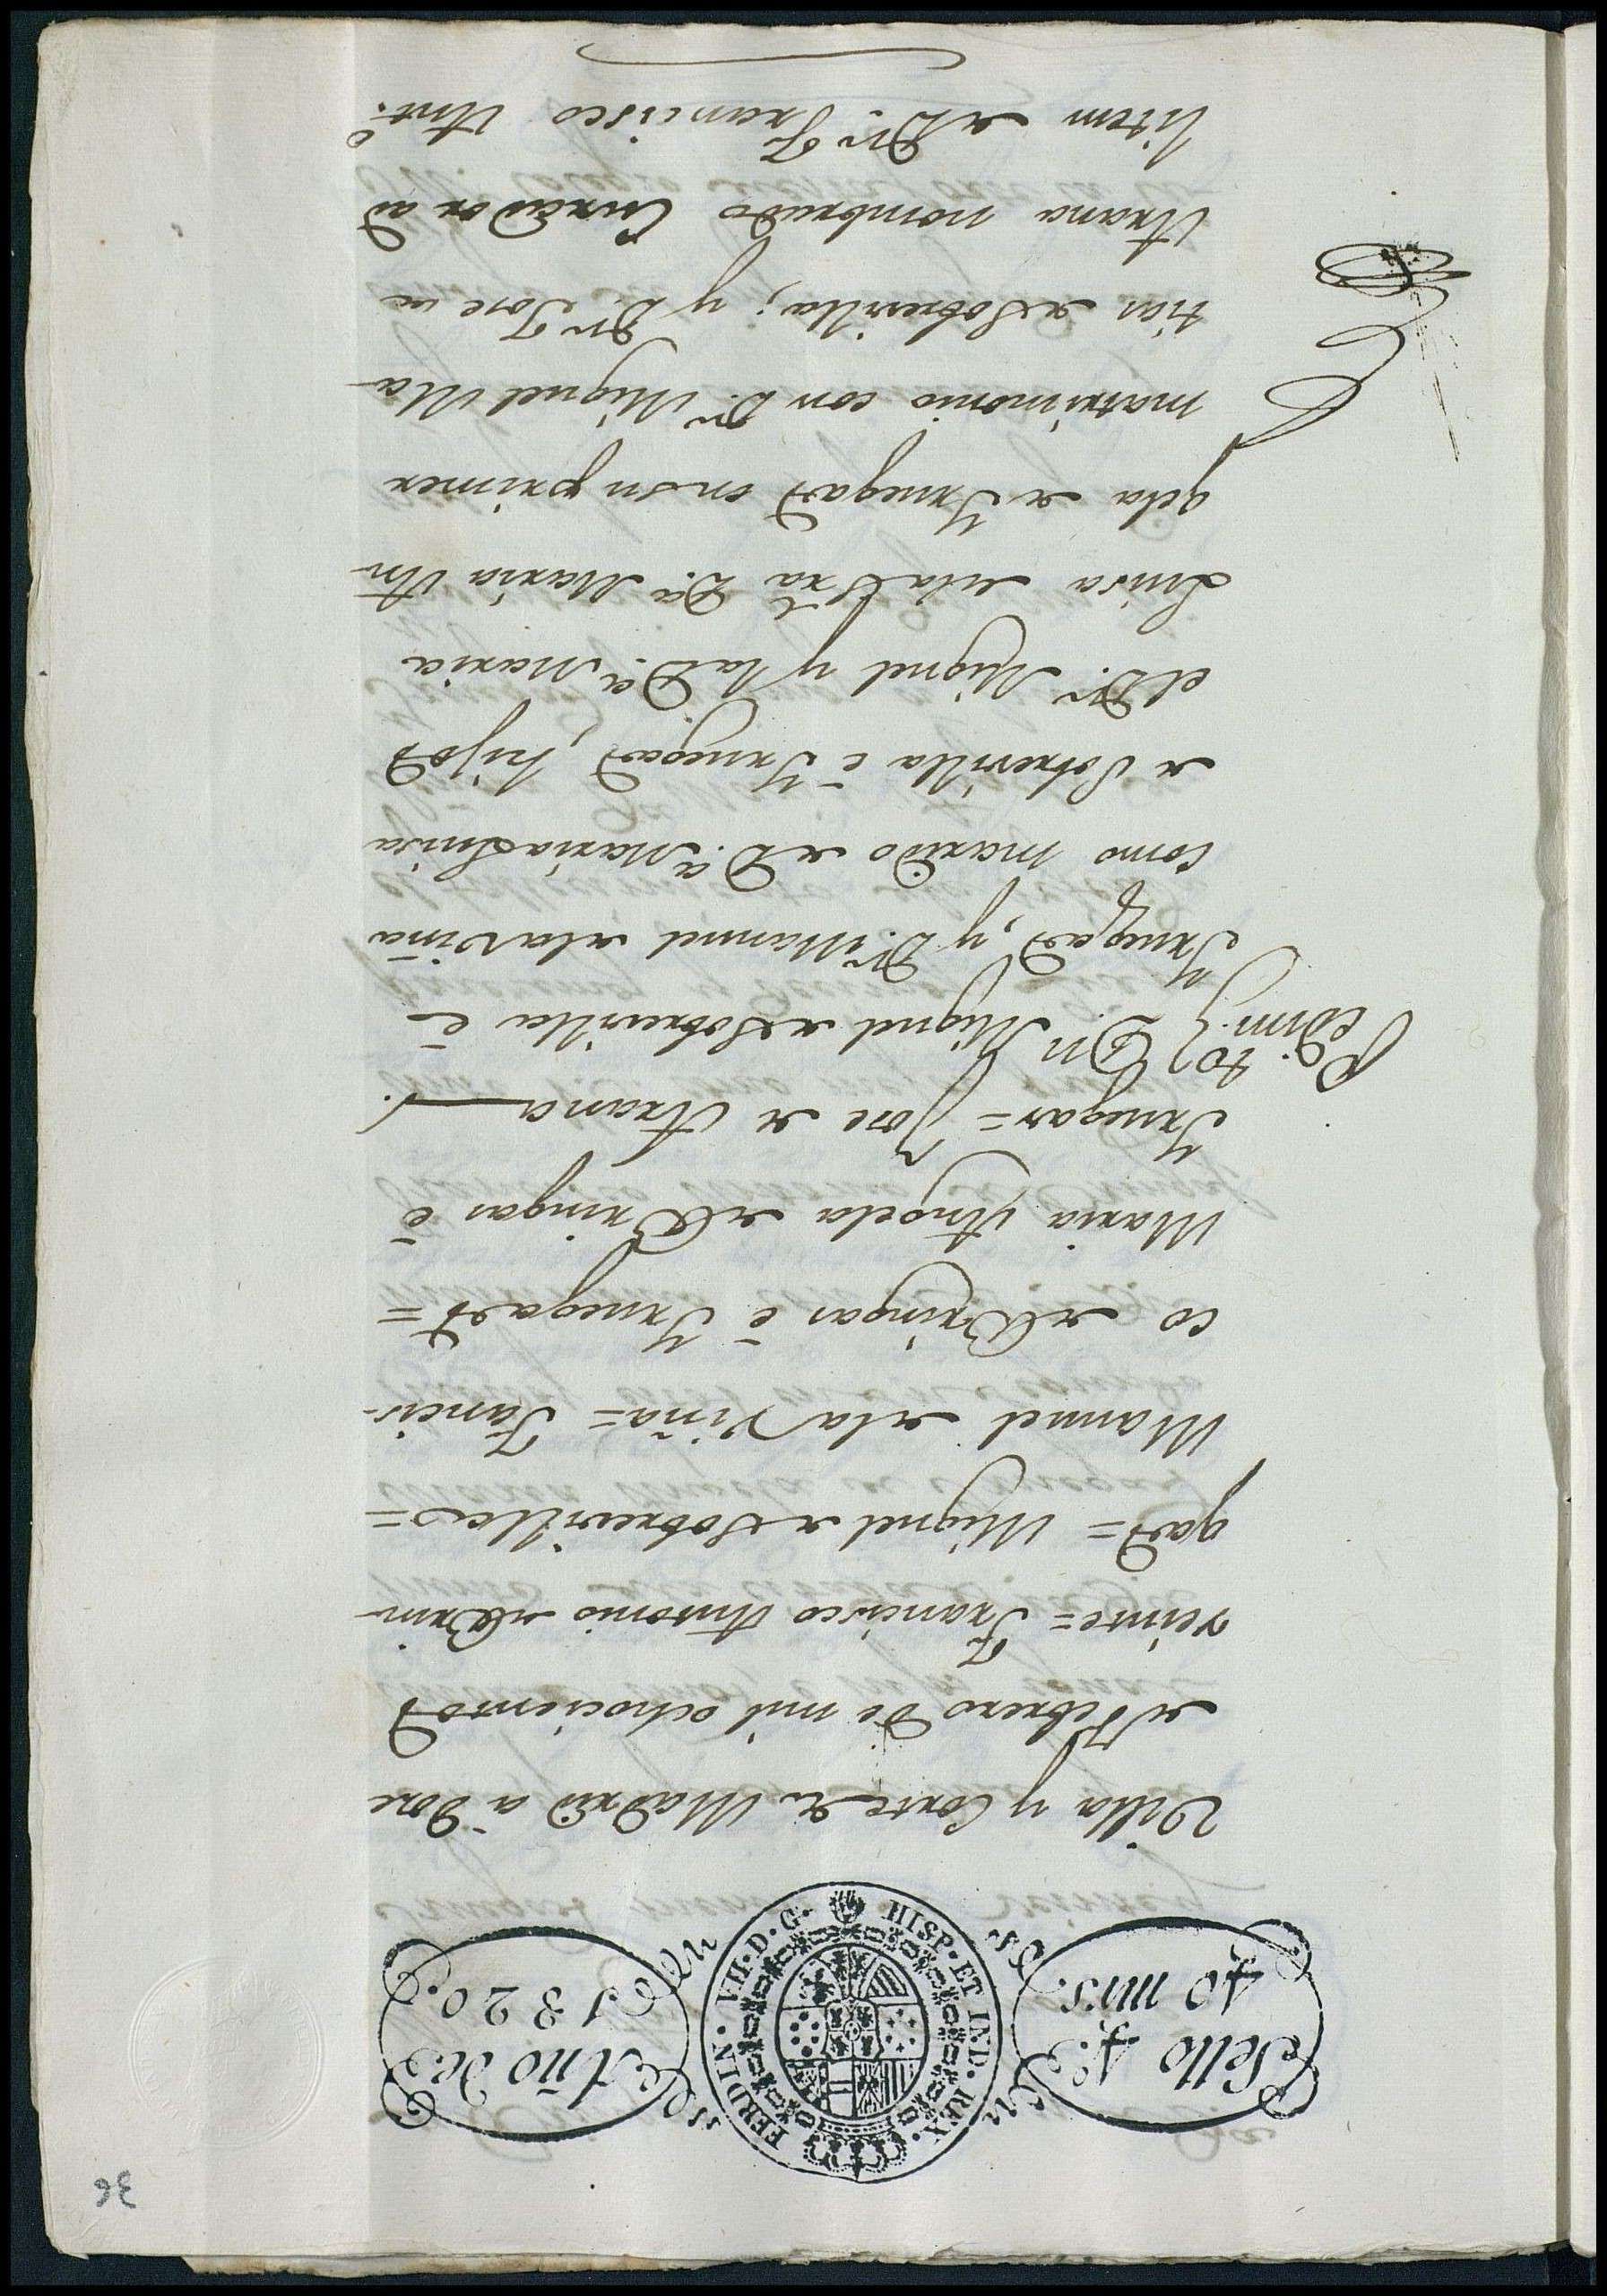 36
Sello 4º
40 mrs.
FERDIN. VII. D. G. HISP. ET IND. REX.
Año de
1820.
Villa y Corte de Madrid a doce
de Febrero de mil ochocientos
veinte = Francisco Antonio de Brin-
gas = Miguel de Sobrevilla =
Manuel de la Viña = Fancis-
co de Bringas é Yruegas =
Maria Angela de Bringas é
Yruegas = Jose de Arana
Pedim.to
Dn. Miguel de Sobrevilla é
Yruegas, y Dn. Manuel de la Viña
como marido de Dª. Maria Luisa
de Sobrevilla é Yruegas, hijos
el Dn. Miguel y la Dª. Maria
Luisa de la Sra. Dª. Maria An-
gela de Yruegas en su primer
matrimonio con Dn. Miguel Ma-
tias de Sobrevilla; y Dn. Jose de
Arana nombrado Curador ad
litem de Dn. Francisco Antº.